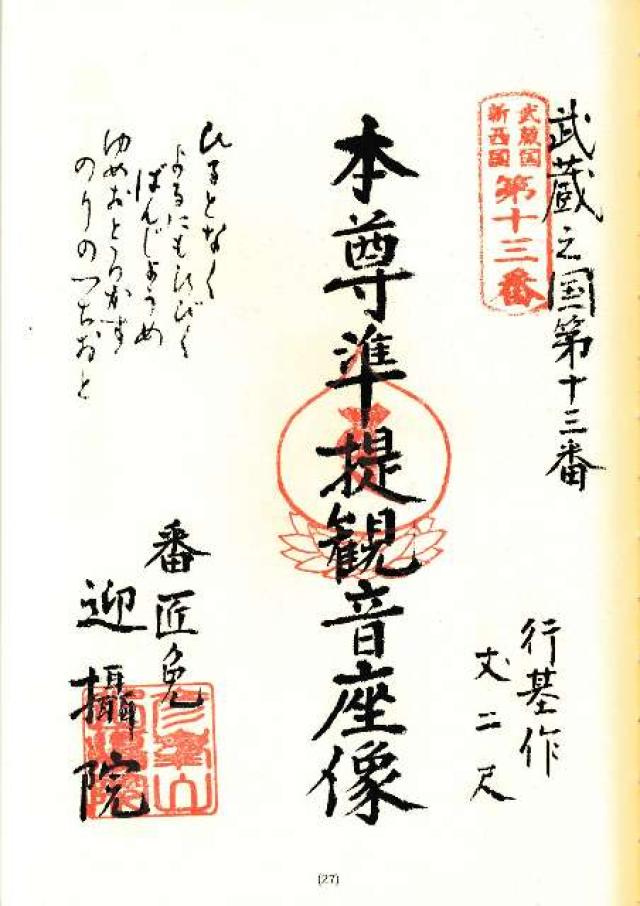 武蔵之国第十三番
武蔵国
新西国
第十三番
行基作
丈二尺
本尊準提観音座像
ひるとなく
よるにもひびく
ばんじようめ
ゆめおとろかす
のりのつちおと
番匠免
迎攝院
(27)